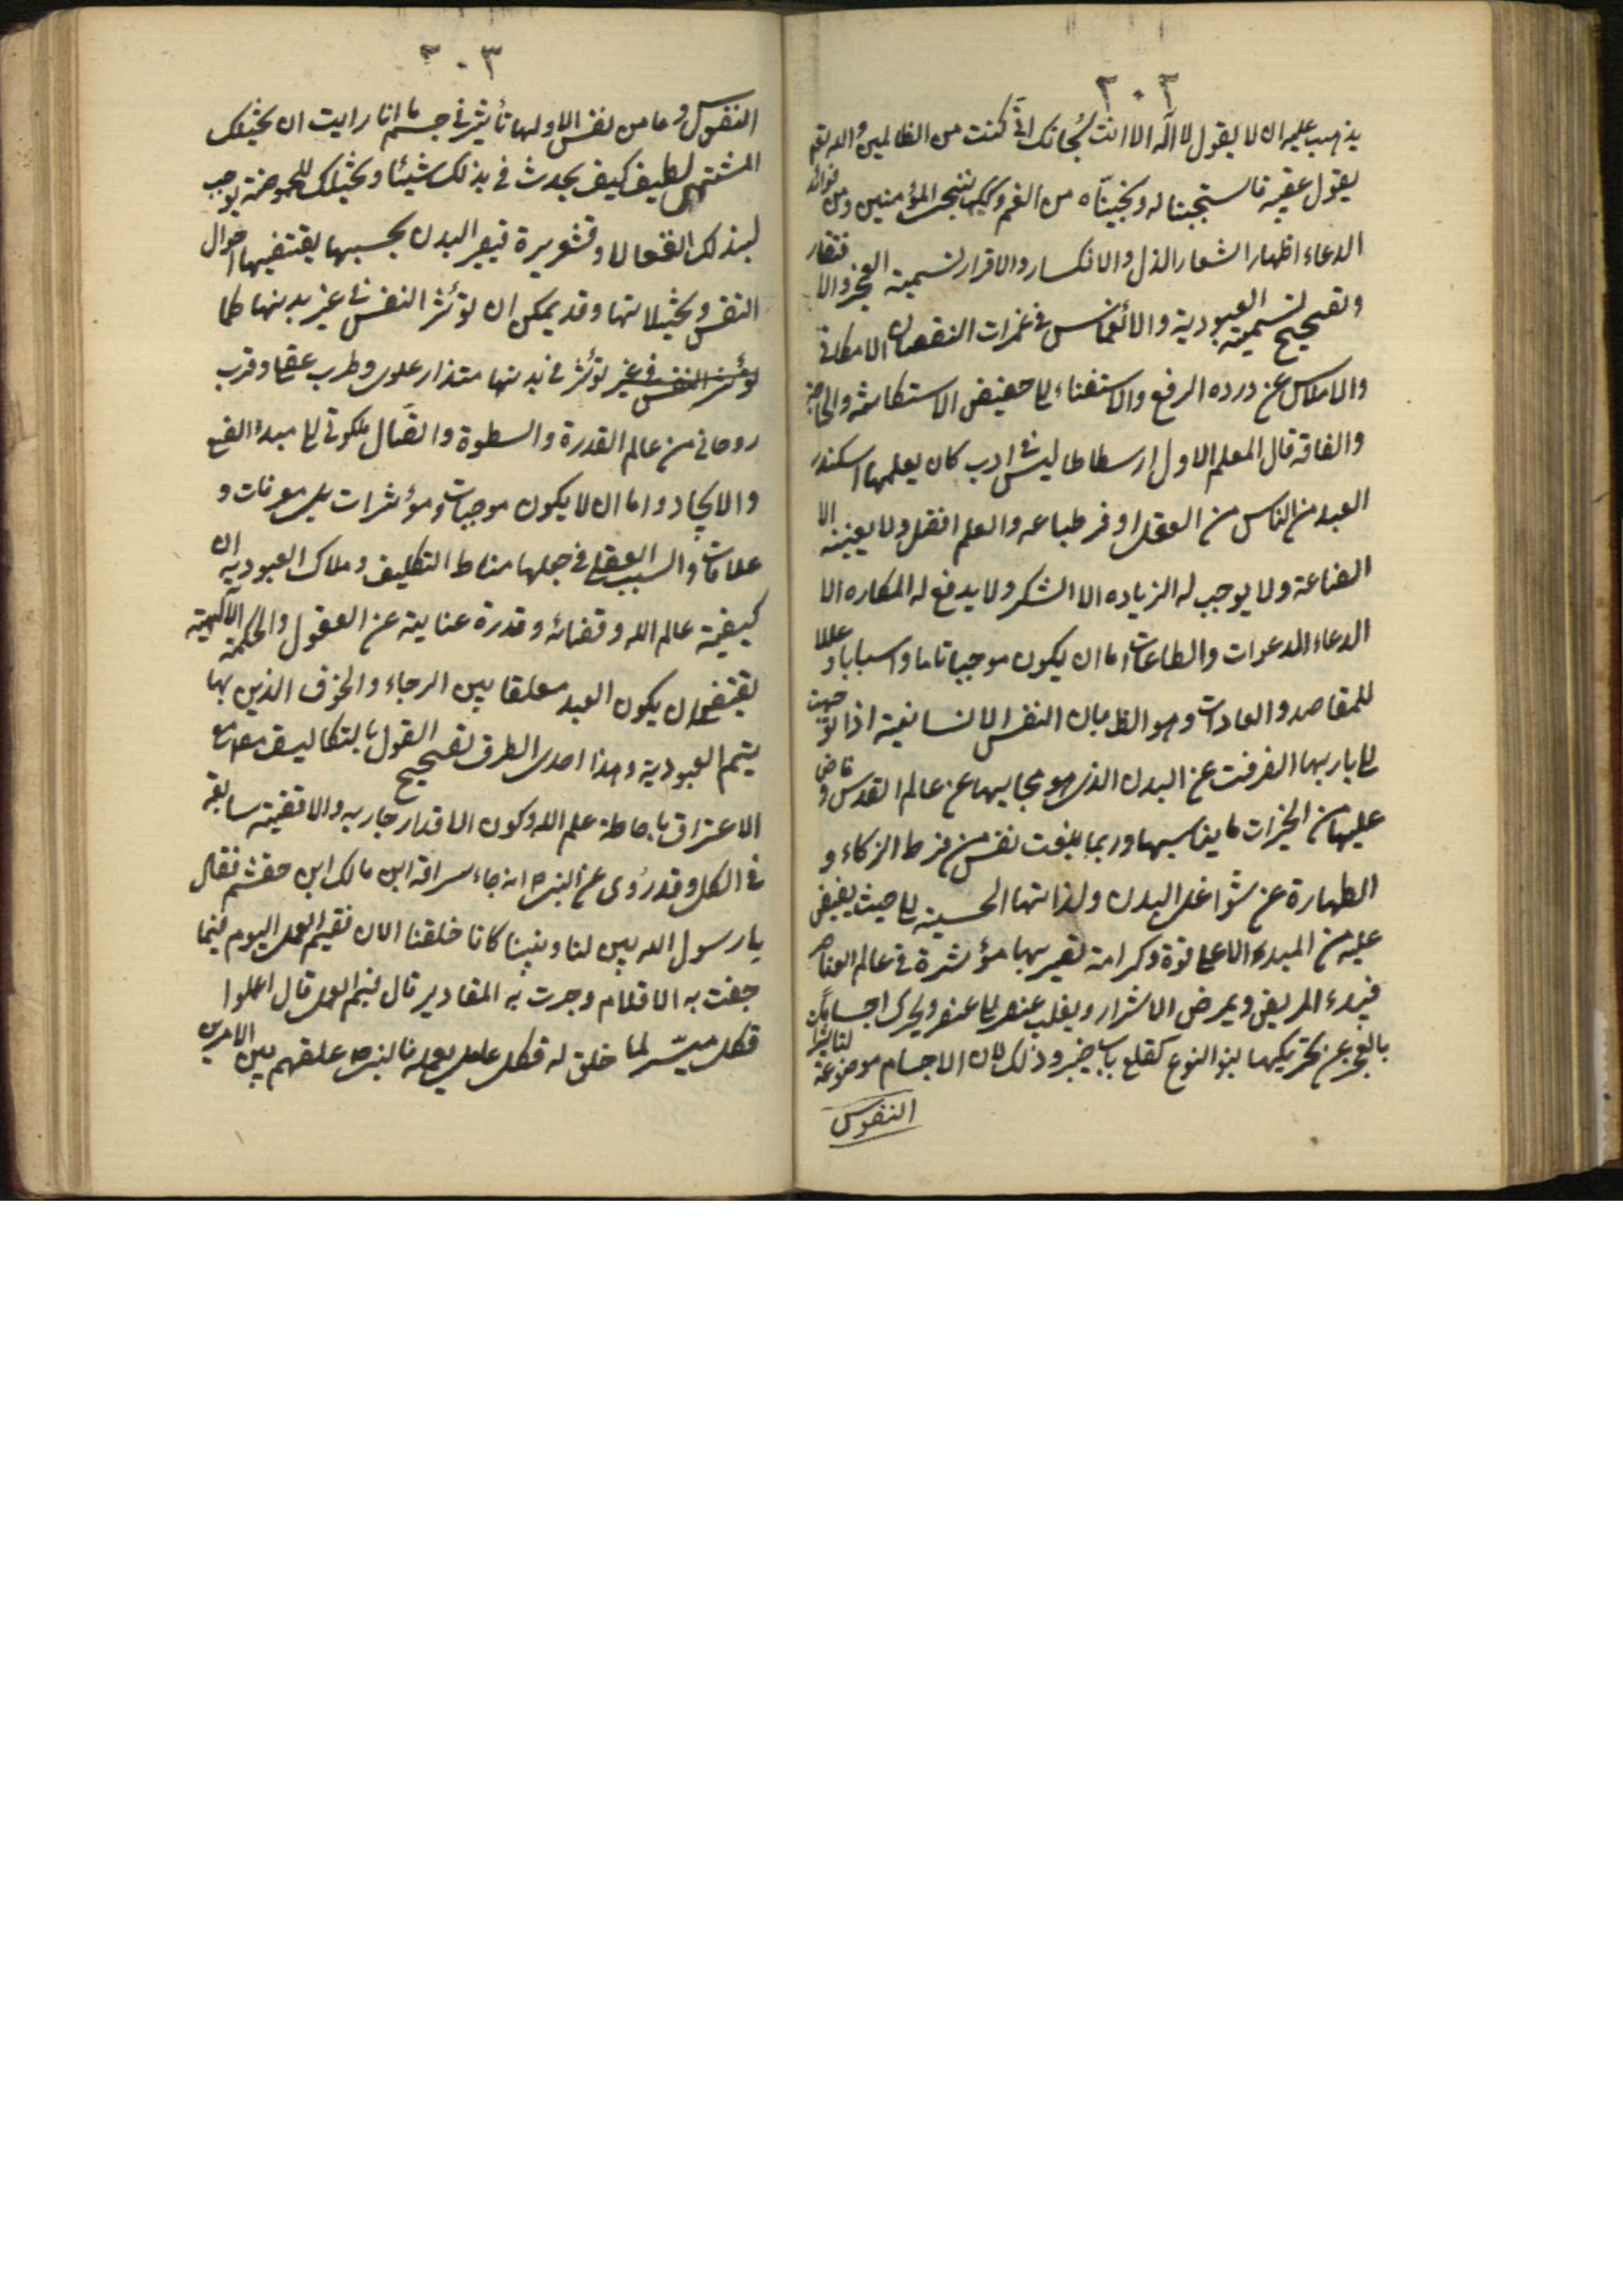 ٣٠٢
يذهب عليه ان لا يقول لا اله الا انت سبحانك انى كنت من الظالمين والله تعم
يقول عقيبه فاستجبنا له ونجيناه من الغم وكذلك ننجى المؤمنين ومن فوائد
الدعاء اظهار الشعار الذل والانكسار والاقرار لسمية العجز والافتقار
وتصحيح لسمية العبودية والانغماس فى غمرات النقصان الامكانى
والاملاس عن ذروه الرفع والاستغناء الى حضيض الاستكانة والحاجة
والفاقه قال المعلم الاول ارسطاطاليس فى ادب كان يعلمها اسكندر
العبد من الناس من العقل اوفر طباعه والعلم افضل ولا يعينه الا
القناعة ولا يوجب له الزياده الا الشكر ولا يدفع له المكاره الا
الدعاء الدعوات والطاعات اما ان يكون موجبا تاما واسبابا وعللا
للمقاصد والعادات وهو الظ بان النفس الانسانية اذا توجهت
الى باريها انصرفت عن البدن الذى هو حجابها عن عالم القدس وفاض
عليها من الخيرات ما يناسبها وربما بلغت نفس من فرط الزكاء و
الطهارة عن شواغل البدن ولذاتها الحسية الى حيث يفيض
عليه من المبدء الاعلى قوة وكرامة تصير بها مؤثرة فى عالم العناصر
فيبرء المريض ويمرض الاشرار ويقلب عنصر الى عنصر ويحرك اجساما يكن
بالعجز عن تحريكها بنو النوع كقلع باب خيبر وذلك لان الاجسام موضوعة لتاثير
النفوس
٣٠٣
النفوس وما من نفس الا ولها تأثير فى جسم ما انا رايت ان تخيلك
المشتهى لطيف كيف يحدث فى بدنك شيئا وتخيلك للحموضة يوجب
لبدنك انفعالا وقشعريرة فيغير البدن بحسبها يقتضيها احوال
النفس وتخيلاتها وقد يمكن ان تؤثر النفس فى غير بدنها كما
تؤثر النفس فى غير تؤثر فى بدنها متذار علوى وطرب عقلى وقرب
روحانى من عالم القدرة والسطوة واتصال ملكوتى الى مبدء الصنع
والايجاد واما ان لا يكون موجبات ومؤثرات بل معرفات و
علامات والسبب العقلى فى جعلها مناط التكليف وملاك العبودية ان
كيفية عالم الله وقضائه وقدرة عناية عن العقول والحكمة الالهية
يقتضى ان يكون العبد معلقا بين الرجاء والخوف الذين بها
يتم العبودية وهذا احدى الطرق لتصحيح القول بالتكاليف مع
الاعتراف باحاطة علم الله وكون الاقدار جاريه والاقضية سابقه
فى الكل وقد روى عن النبى ص انه جاء سراقه ابن مالك ابن جعشم فقال
يا رسول الله بين لنا ديننا كانا خلقنا الان ففيم العمل اليوم فيما
جفت به الاقلام وجرت به المقادير قال فيم العمل قال اعملوا
فكل ميسر لما خلق له فكل عامل بعمله فالنبى ص علقهم بين الامرين